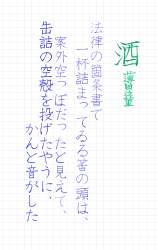 酒
薔薇
法律の箇条書で
一杯詰まってゐる筈の頭は、
案外空っぽだったと見えて、
缶詰の空殻を投げたやうに、
かんと音がした